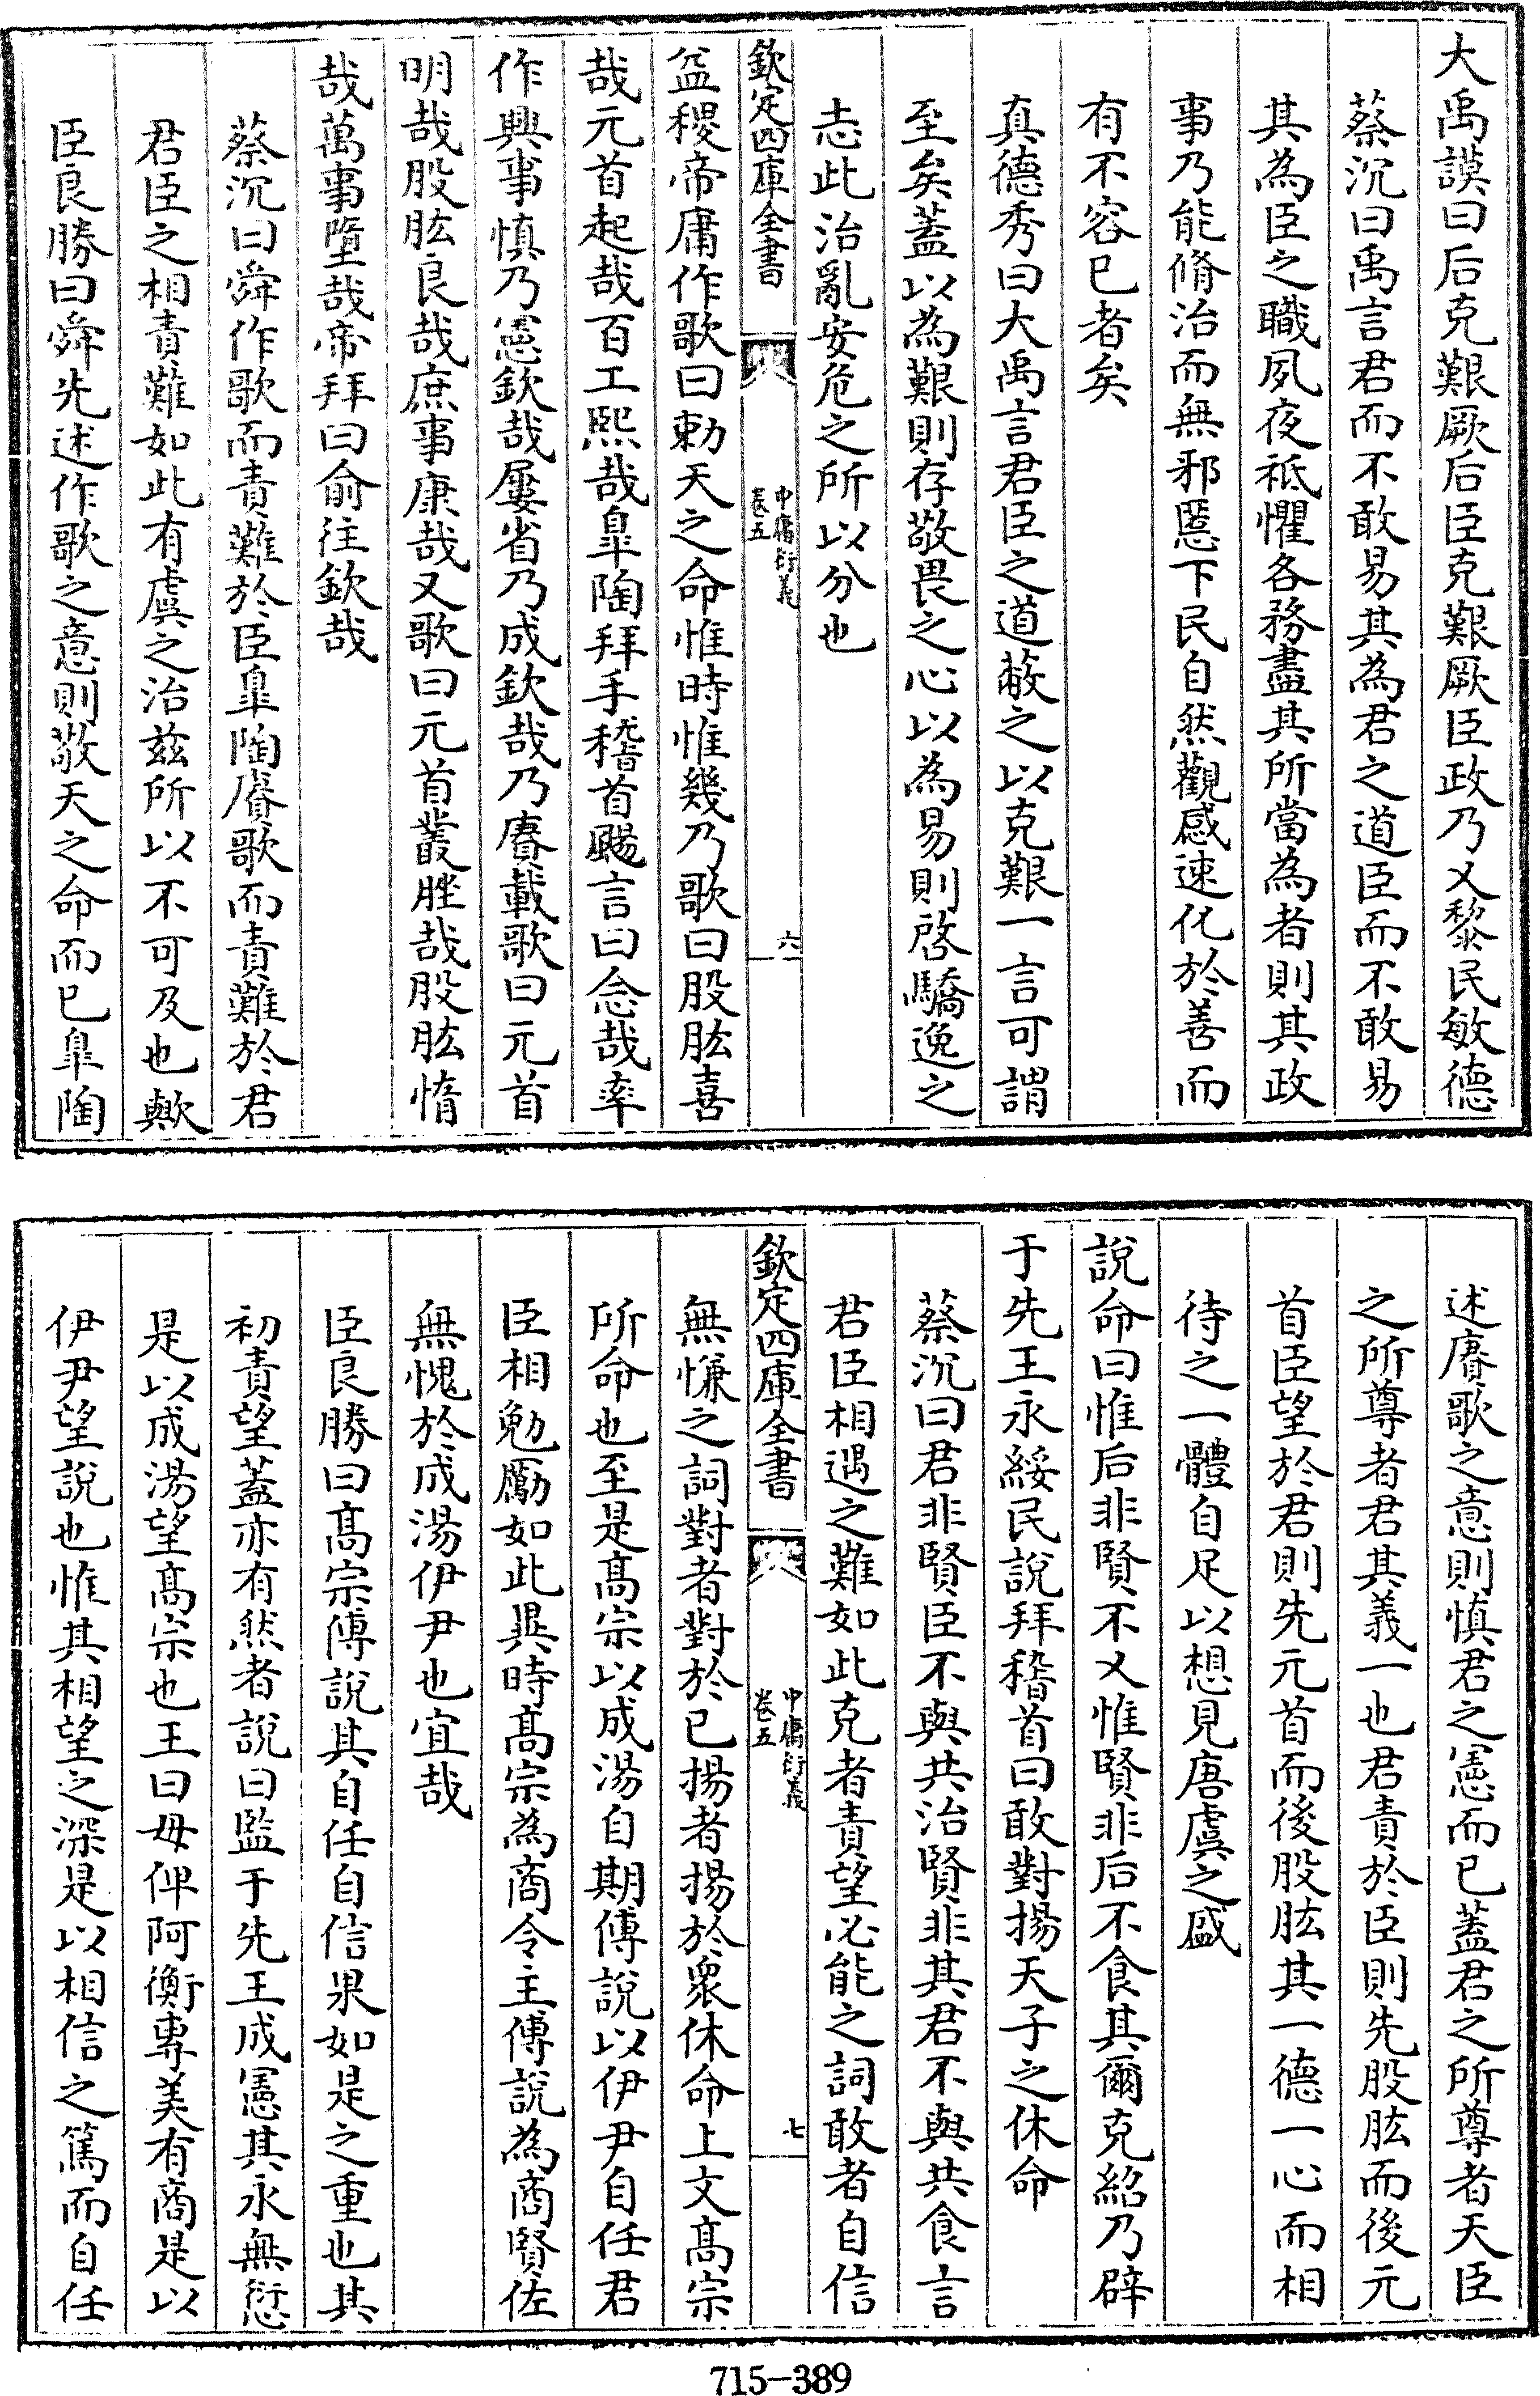 大禹謨曰后克艱厥后臣克艱厥臣政乃乂黎民敏德
蔡沉曰禹言君而不敢易其為君之道臣而不敢易
其為臣之職夙夜祗懼各務盡其所當為者則其政
事乃能脩治而無邪慝下民自然觀感速化於善而
有不容已者矣
真德秀曰大禹言君臣之道蔽之以克艱一言可謂
至矣蓋以為艱則存敬畏之心以為易則啓驕逸之
志此治亂安危之所以分也
欽定四庫全書
中庸衍義
卷五
六
益稷帝庸作歌曰勅天之命惟時惟幾乃歌曰股肱喜
哉元首起哉百工熙哉臯陶拜手稽首颺言曰念哉率
作興事慎乃憲欽哉屢省乃成欽哉乃賡載歌曰元首
明哉股肱良哉庶事康哉又歌曰元首叢脞哉股肱惰
哉萬事墮哉帝拜曰俞往欽哉
蔡沉曰舜作歌而責難於臣臯陶賡歌而責難於君
君臣之相責難如此有虞之治茲所以不可及也歟
臣良勝曰舜先述作歌之意則敬天之命而已臯陶
述賡歌之意則慎君之憲而已蓋君之所尊者天臣
之所尊者君其義一也君責於臣則先股肱而後元
首臣望於君則先元首而後股肱其一德一心而相
待之一體自足以想見唐虞之盛
說命曰惟后非賢不乂惟賢非后不食其爾克紹乃辟
于先王永綏民說拜稽首曰敢對揚天子之休命
蔡沉曰君非賢臣不與共治賢非其君不與共食言
君臣相遇之難如此克者責望必能之詞敢者自信
欽定四庫全書
中庸衍義
卷五
七
無慊之詞對者對於已揚者揚於衆休命上文髙宗
所命也至是髙宗以成湯自期傅說以伊尹自任君
臣相勉勵如此異時髙宗為商令主傅說為商賢佐
無愧於成湯伊尹也宜哉
臣良勝曰髙宗傅說其自任自信果如是之重也其
初責望蓋亦有然者說曰監于先王成憲其永無愆
是以成湯望髙宗也王曰毋俾阿衡專美有商是以
伊尹望說也惟其相望之深是以相信之篤而自任
715-389